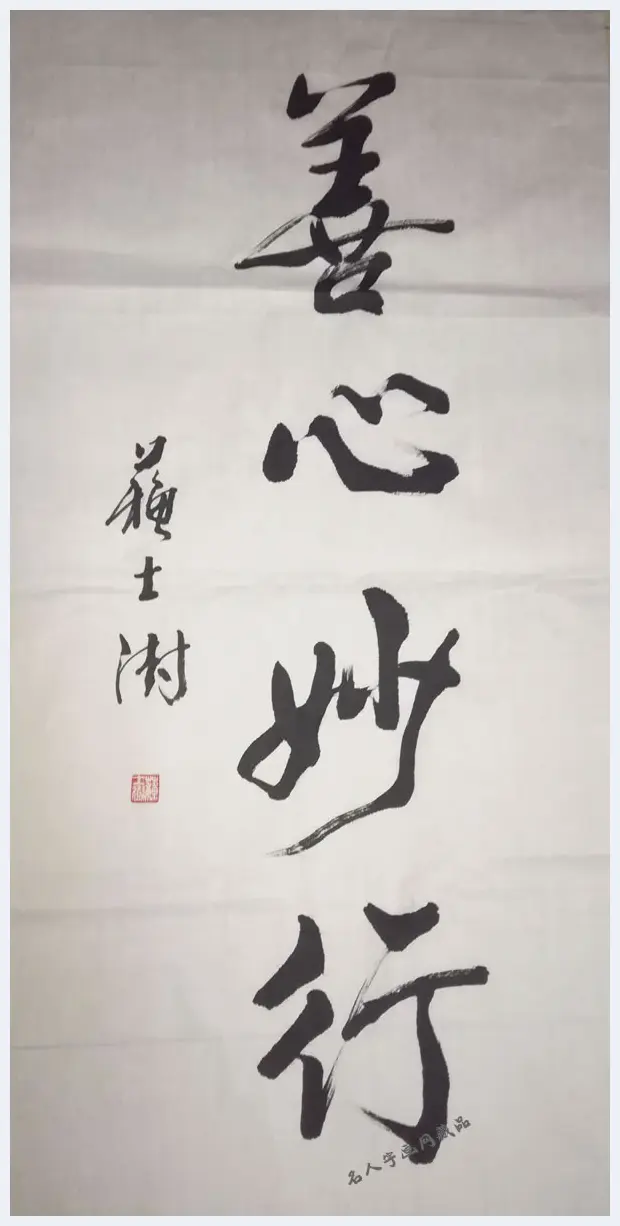 善心妙行
蘇士澍
名人字画网藏品